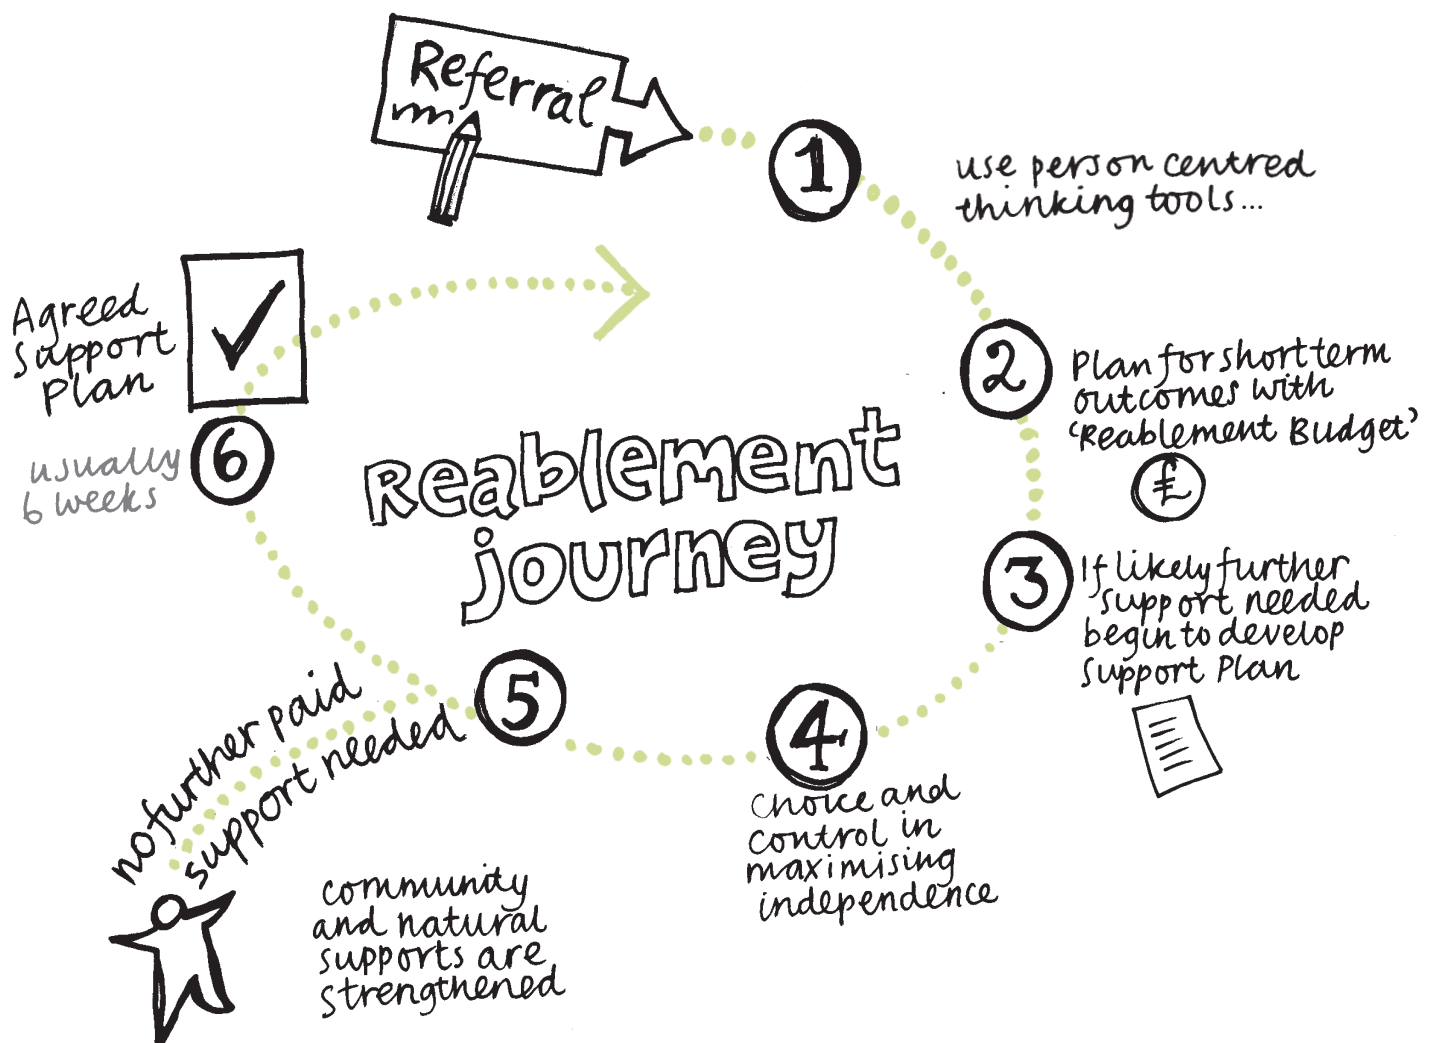 Referral
1
use person centred
thinking tools...
2
Plan for short term
outcomes with
'Reablement Budget'
£
3
If likely further
support needed
begin to develop
support Plan
4
Choice and
control in
maximising
independence
5
no further paid
support needed
community
and natural
supports are
strengthened
6
usually
6 weeks
Agreed
support
Plan
Reablement
journey